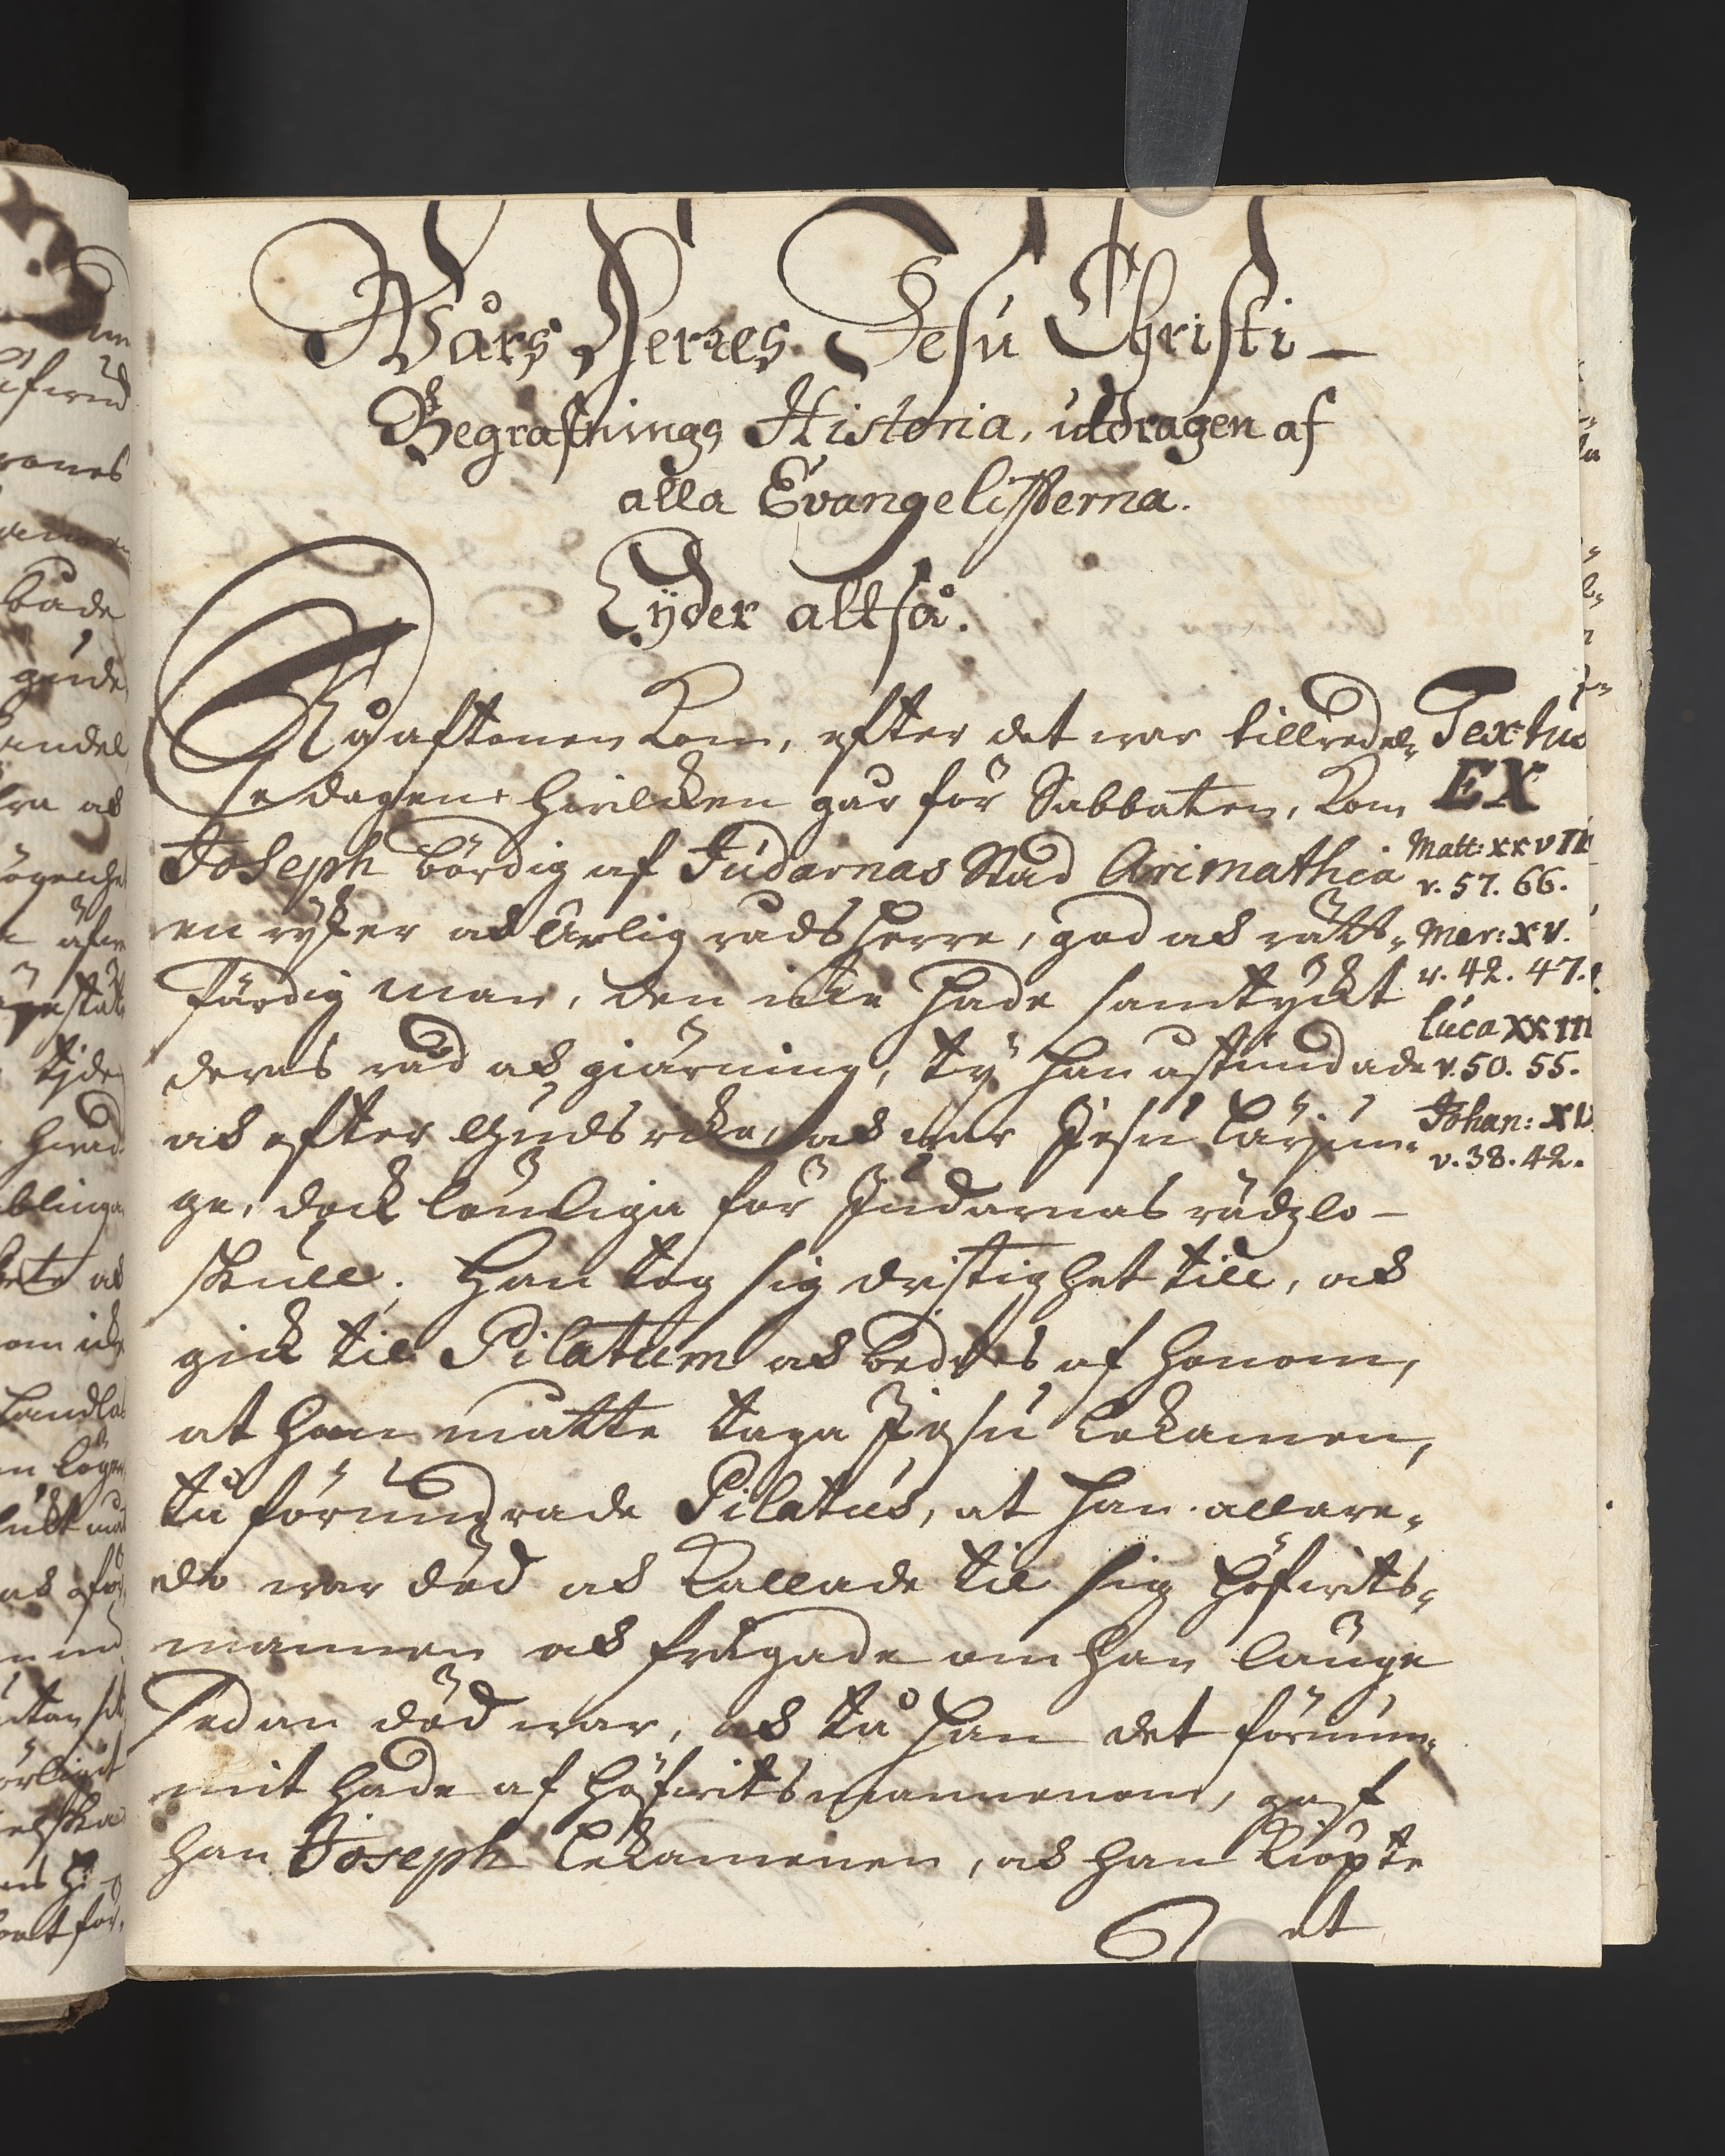 Wårs Herres Jesu Christi —
Begrafnings Historia, utdragen af
alla Evangelisterna.
Lÿder altså.
Nå aftonen kom, efter det war tillredel-
se dagen hwilcken går för Sabbaten, kom
Joseph bördig af Judarnas Stad Arimathia
en ryker ock ärlig rådsherre, god ock rätt-
färdig man, den icke hade samtyckt
deras råd ock giärning, ty han åstundade
ock efter Guds rike, ock war Jesu lärjun-
ge, dock lönliga för Judarnas rädzlo-
skull. Han tog sig dristighet till, ock
gick til Pilatum ock beddes af honom,
at han måtte taga Jesu Lekamen,
tå förundrade Pilatus, at han allare-
do war död ock kallade til sig höfwits-
mannen ock frågade om han länge
sedan död war, ock tå han det förnum-
mit hade af höfwitsmannenom, gaf
han Joseph Lekamenen, ock han kiöpte
et
Textus
EX
Matt: XXVII
v. 57. 66.
Mar: XV.
v. 42. 47.
Luca XXIII
v. 50. 55.
Johan: XV
v. 38. 42.